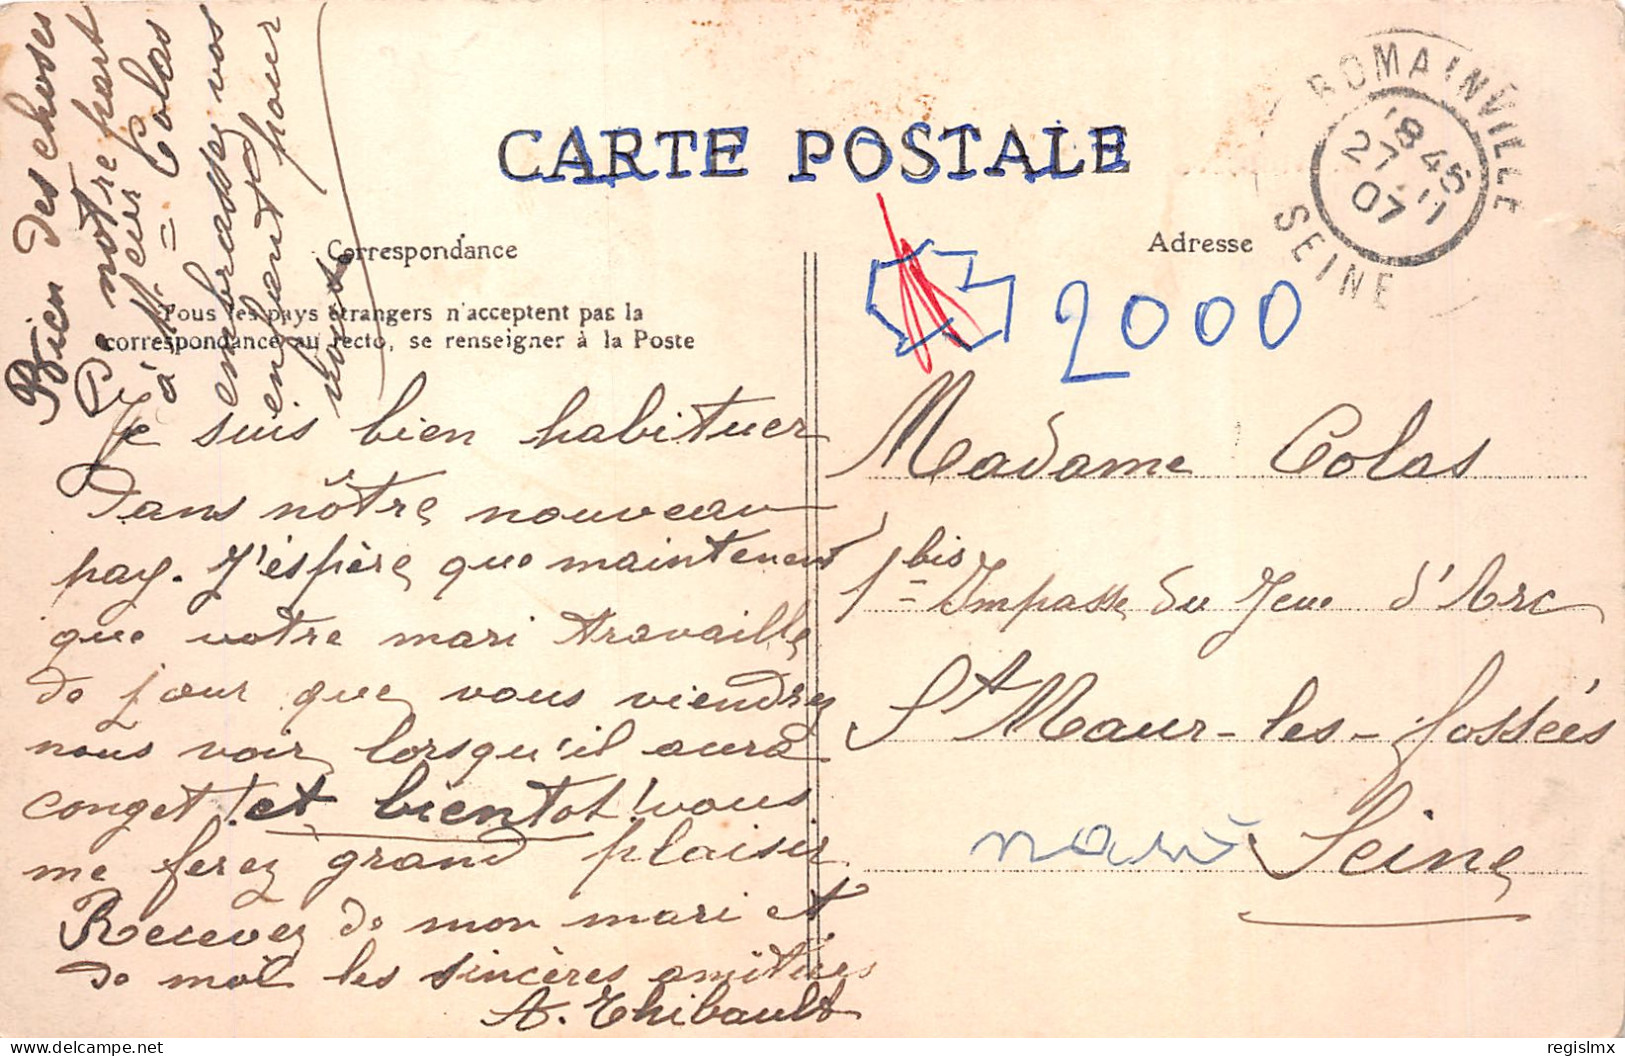 Bien des choses
De notre part
à Mr = Colas
embrassez vos
enfants pour
nous
CARTE POSTALE
Correspondance
Tous les pays étrangers n'acceptent pas la
correspondance au recto, se renseigner à la Poste
Je suis bien habituer
Dans nôtre nouveau
pay. J'éspère que maintenent
que votre mari travaille
de jour que vous viendrez
nous voir lorsqu'il aura
conget! et bientot! vous
me ferez grand plaisir
Recevez de mon mari et
de moi les sincères amitiées
A. Thibault
ROMAINVILLE
18 45
27 11
07
SEINE
Adresse
2000
Madame Colas
1 bis Impasse du Jeue d'Arc
St Maur-les-fossées
Seine
regislmx